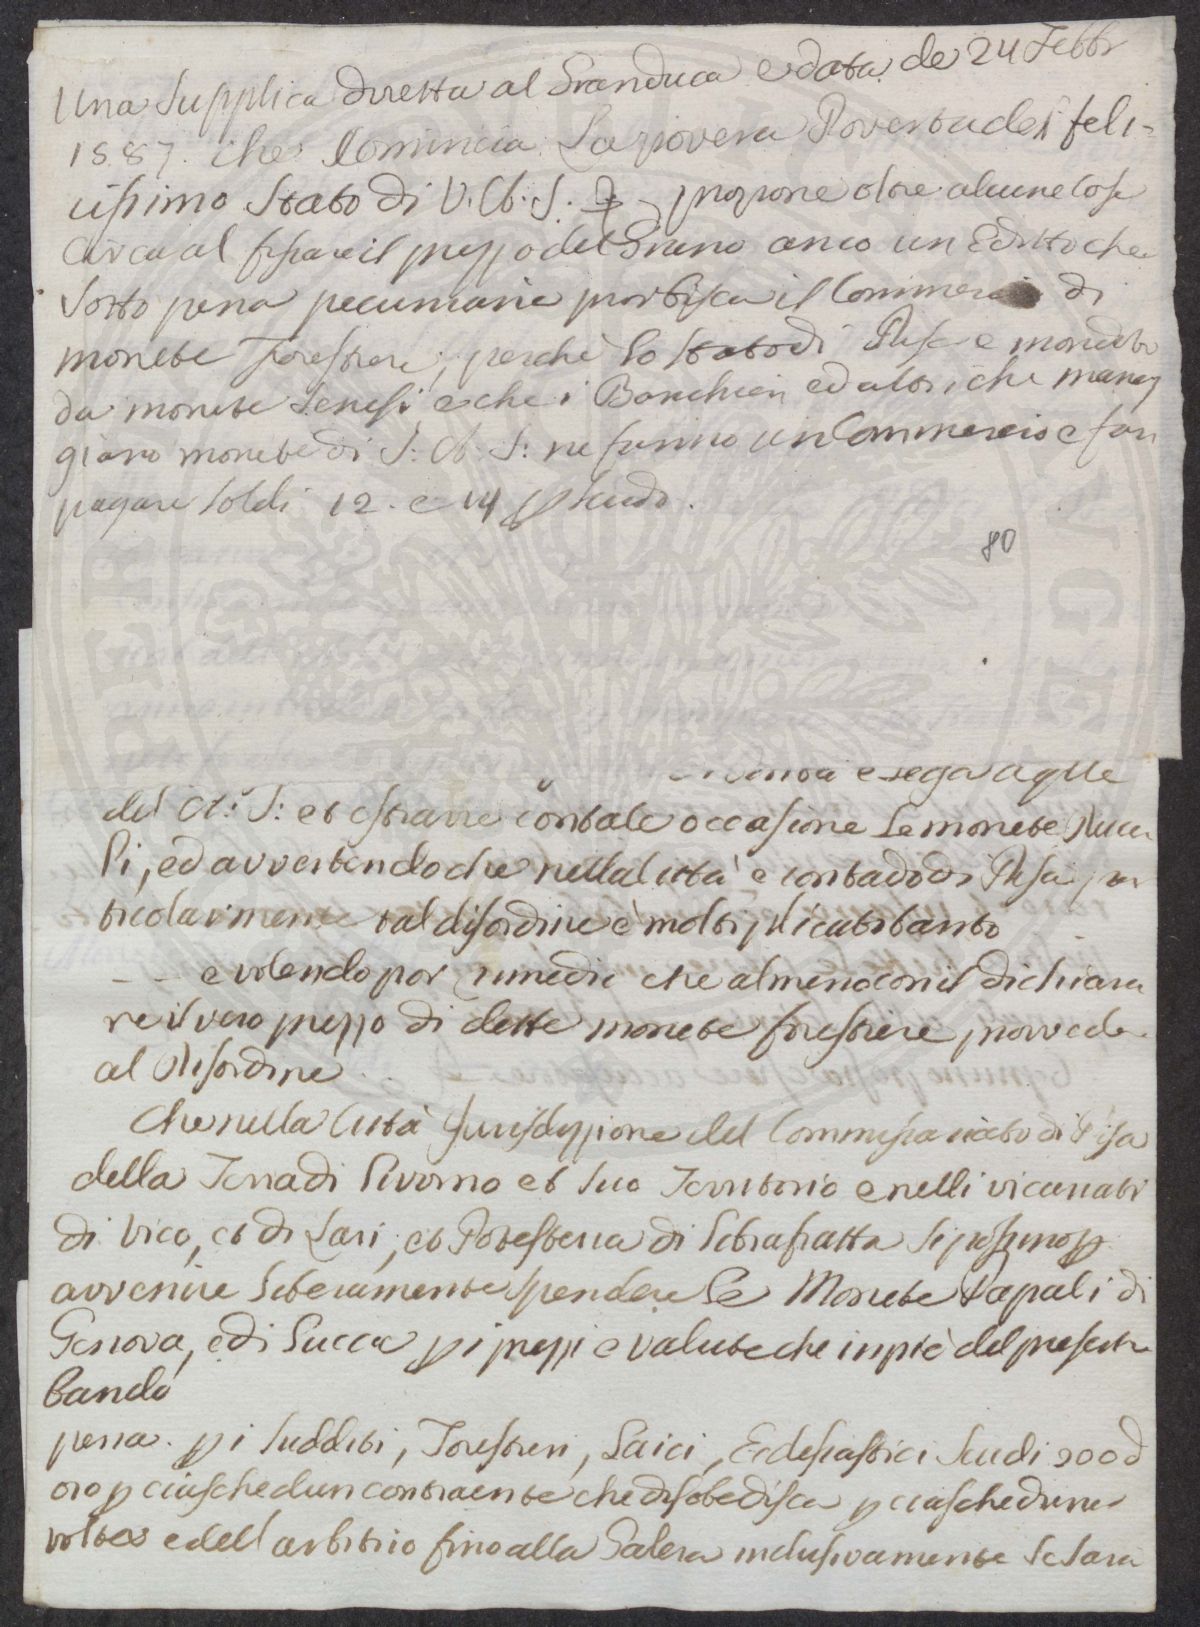 Una Supplica diretta al Granduca e data de 24 Febbr
1587. che Comincia La povera Poverta del feli-
cissimo Stato di V. A. S. propone oltre alcune Cose
Circa al fissare il prezzo del Grano anco un Editto che
Sotto pena pecuniaria proibisca il Commercio di
monete Forestiere, perche lo stato di Pisa e
da monete Lenesi e che i Banchieri ed altri che maneg
giano monete di S: A: S: ne fanno un Commercio e fan
pagare Soldi 12. e 14 p scudo.
80
e sega a qlle
del A: S: et estrarre con tale occasione le monete
Pi, ed avvertendo che nella città e contado di Pisa par
ticolarmente tal disordine è moltiplicato tanto
-- e volendo por rimedio che almeno con il dichiara
re il vero prezzo di dette monete forestiere provvede
al Disordine.
Che nella Città Jurisdizzione del Commissariato di Pisa
della Terra di Livorno et suo Territorio e nelli vicariati
di Vico, et di Lari, et Potesteria di Librafratta si possino p
avvenire liberamente spendere le Monete Papali di
Genova, e di Lucca p i prezzi e valute che in piè del presente
bando
pena. p i Sudditi, Forestieri, Laici, Ecclesiastici Scudi 200 d
oro p ciascheduno contraente che disobedisca p ciascheduna
volta e dell arbitrio fino alla Galera inclusivamente se sara